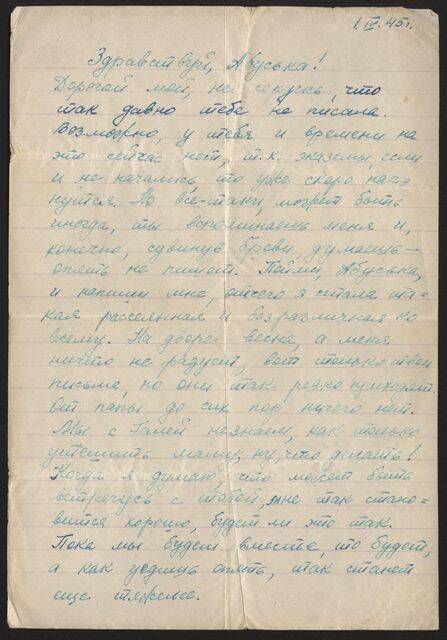 1.IV.45г.
Здравствуй, Абуська!
Дорогой мой, не сердись, что
так давно тебе не писала.
Возможно, у тебя и времени на
это сейчас нет, т.к. экзамены если
и не начались, то уже скоро нач-
нутся. Но всё-таки, может быть
иногда, ты вспоминаешь меня и,
конечно, сдвинув брови, думаешь –
опять не пишет. Пойми, Абуська,
и напиши мне, отчего я стала та-
кая рассеянная и безразличная ко
всему. На дворе весна, а меня
ничто не радует, вот только твои
письма, но они так редко приходят.
От папы до сих пор ничего нет.
Мы с Галей незнаем, как только
утешить маму, ну, что делать!
Когда я думаю, что может быть
встречусь с тобой, мне так стано-
вится хорошо, будет ли это так.
Пока мы будем вместе, то будет,
а как уедишь опять, так станет
еще тяжелее.